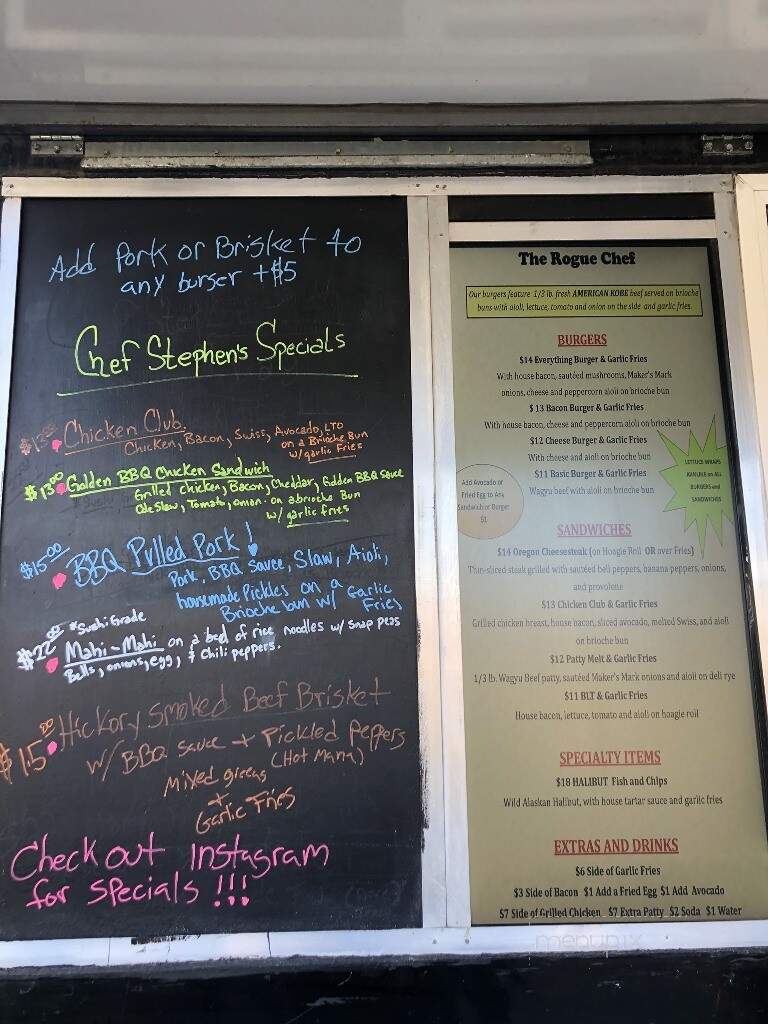 Add Pork or Brisket to
any burger +$5
Chef Stephen's Specials
$13.00 Chicken Club.
Chicken, Bacon, Swiss, Avocado, LTO
on a Brioche Bun
w/ garlic Fries
$13.00 Golden BBQ Chicken Sandwich
Grilled chicken, Bacon, Cheddar, Golden BBQ Sauce
Coleslaw, Tomato, onion. on a brioche Bun
w/ garlic fries
$15.00 BBQ Pulled Pork!
Pork, BBQ Sauce, Slaw, Aioli,
housemade Pickles on a
Brioche bun w/ Garlic
Fries
*Sushi Grade
$22.00 Mahi-Mahi on a bed of rice noodles w/ Snap peas
Bells, onions, egg, & Chili peppers.
$15.00 Hickory Smoked Beef Brisket
w/ BBQ Sauce + Pickled Peppers
(Hot Mama)
Mixed greens
+
Garlic Fries
Check out Instagram
for specials !!!
The Rogue Chef
Our burgers feature 1/3 lb. fresh AMERICAN KOBE beef served on brioche
buns with aioli, lettuce, tomato and onion on the side and garlic fries.
BURGERS
$14 Everything Burger & Garlic Fries
With house bacon, sautéed mushrooms, Maker's Mark
onions, cheese and peppercorn aioli on brioche bun
$ 13 Bacon Burger & Garlic Fries
With house bacon, cheese and peppercorn aioli on brioche bun
$12 Cheese Burger & Garlic Fries
With cheese and aioli on brioche bun
$11 Basic Burger & Garlic Fries
Wagyu beef with aioli on brioche bun
Add Avocado or
Fried Egg to Any
Sandwich or Burger
$1
LETTUCE WRAPS
AVAILABLE on ALL
BURGERS and
SANDWICHES
SANDWICHES
$14 Oregon Cheesesteak (on Hoagie Roll OR over Fries)
Thin-sliced steak grilled with sautéed bell peppers, banana peppers, onions,
and provolone
$13 Chicken Club & Garlic Fries
Grilled chicken breast, house bacon, sliced avocado, melted Swiss, and aioli
on brioche bun
$12 Patty Melt & Garlic Fries
1/3 lb. Wagyu Beef patty, sautéed Maker's Mark onions and aioli on deli rye
$11 BLT & Garlic Fries
House bacon, lettuce, tomato and aioli on hoagie roll
SPECIALTY ITEMS
$18 HALIBUT Fish and Chips
Wild Alaskan Halibut, with house tartar sauce and garlic fries
EXTRAS AND DRINKS
$6 Side of Garlic Fries
$3 Side of Bacon $1 Add a Fried Egg $1 Add Avocado
$7 Side of Grilled Chicken $7 Extra Patty $2 Soda $1 Water
menupix